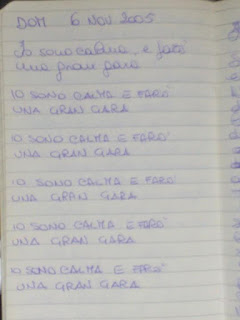 DOM 6 NOV 2005
Io sono calma e farò
una gran gara
IO SONO CALMA E FARO'
UNA GRAN GARA
IO SONO CALMA E FARO'
UNA GRAN GARA
IO SONO CALMA E FARO'
UNA GRAN GARA
IO SONO CALMA E FARO'
UNA GRAN GARA
IO SONO CALMA E FARO'
UNA GRAN GARA